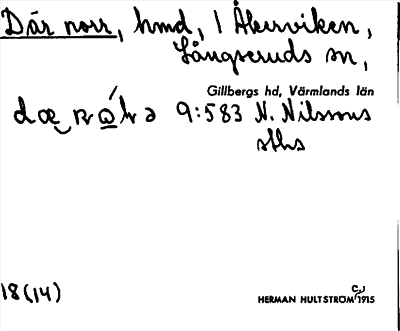 Där norr, hmd, 1 Åkerviken,
Långseruds sn,
Gillbergs hd, Värmlands län
9:583 N. Nilssons
sths
18(14)
HERMAN HULTSTRÖM 1915